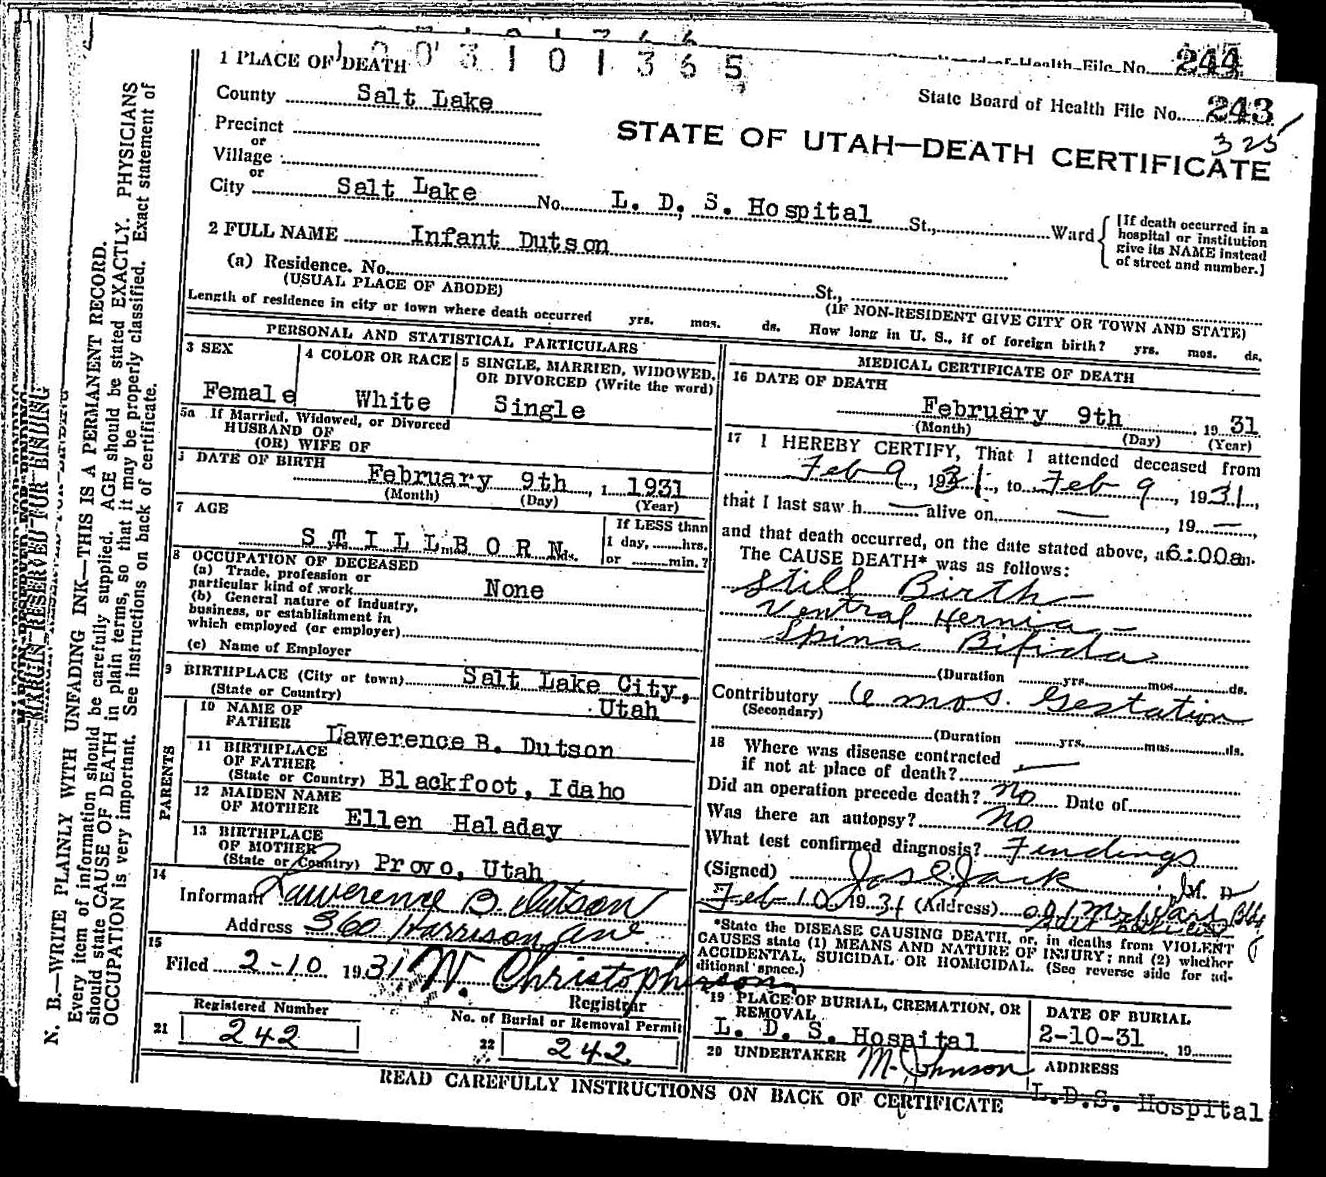 1003101365
244
1 PLACE OF DEATH
State Board of Health File No. 243
325
County Salt Lake
STATE OF UTAH—DEATH CERTIFICATE
Precinct
or
Village
or
City Salt Lake No. L. D. S. Hospital St., Ward
[If death occurred in a
hospital or institution
give its NAME instead
of street and number.]
2 FULL NAME Infant Dutson
(a) Residence. No. St.,
(USUAL PLACE OF ABODE) (IF NON-RESIDENT GIVE CITY OR TOWN AND STATE)
Length of residence in city or town where death occurred yrs. mos. ds. How long in U. S., if of foreign birth? yrs. mos. ds.
PERSONAL AND STATISTICAL PARTICULARS
3 SEX
Female
4 COLOR OR RACE
White
5 SINGLE, MARRIED, WIDOWED,
OR DIVORCED (Write the word)
Single
5a If Married, Widowed, or Divorced
HUSBAND OF
(OR) WIFE OF
DATE OF BIRTH
February 9th, 1931
(Month) (Day) (Year)
7 AGE
STILLBORN
If LESS than
1 day, hrs.
or min.?
8 OCCUPATION OF DECEASED
(a) Trade, profession or
particular kind of work None
(b) General nature of industry,
business, or establishment in
which employed (or employer)
(c) Name of Employer
9 BIRTHPLACE (City or town) Salt Lake City,
(State or Country) Utah
PARENTS
10 NAME OF
FATHER Lawerence B. Dutson
11 BIRTHPLACE
OF FATHER
(State or Country) Blackfoot, Idaho
12 MAIDEN NAME
OF MOTHER Ellen Haladay
13 BIRTHPLACE
OF MOTHER
(State or Country) Provo, Utah
14
Informant Lawerence B. Dutson
Address 360 Harrison Ave.
15
Filed 2-10 1931 W. Christopherson
Registrar
Registered Number
21 242
No. of Burial or Removal Permit
22 242
MEDICAL CERTIFICATE OF DEATH
16 DATE OF DEATH
February 9th 1931
(Month) (Day) (Year)
17 I HEREBY CERTIFY, That I attended deceased from
Feb 9, 1931, to Feb 9, 1931,
that I last saw h — alive on —, 19 —
and that death occurred, on the date stated above, at 6:00a m.
The CAUSE DEATH* was as follows:
Still Birth —
Ventral Hernia —
Spina Bifida
(Duration yrs. mos. ds.
Contributory 6 mos. Gestation
(Secondary)
(Duration yrs. mos. ds.
18 Where was disease contracted
if not at place of death?
Did an operation precede death? No Date of
Was there an autopsy? No
What test confirmed diagnosis? Findings
(Signed) M. D
Feb 10 1931 (Address)
*State the DISEASE CAUSING DEATH, or, in deaths from VIOLENT
CAUSES state (1) MEANS AND NATURE OF INJURY; and (2) whether
ACCIDENTAL, SUICIDAL OR HOMICIDAL. (See reverse side for ad-
ditional space.)
19 PLACE OF BURIAL, CREMATION, OR
REMOVAL
L. D. S. Hospital
DATE OF BURIAL
2-10-31 19
20 UNDERTAKER M. Johnson
ADDRESS
L.D.S. Hospital
READ CAREFULLY INSTRUCTIONS ON BACK OF CERTIFICATE
MARGIN RESERVED FOR BINDING
N. B.—WRITE PLAINLY WITH UNFADING INK—THIS IS A PERMANENT RECORD.
Every item of information should be carefully supplied. AGE should be stated EXACTLY. PHYSICIANS
should state CAUSE OF DEATH in plain terms, so that it may be properly classified. Exact statement of
OCCUPATION is very important. See instructions on back of certificate.